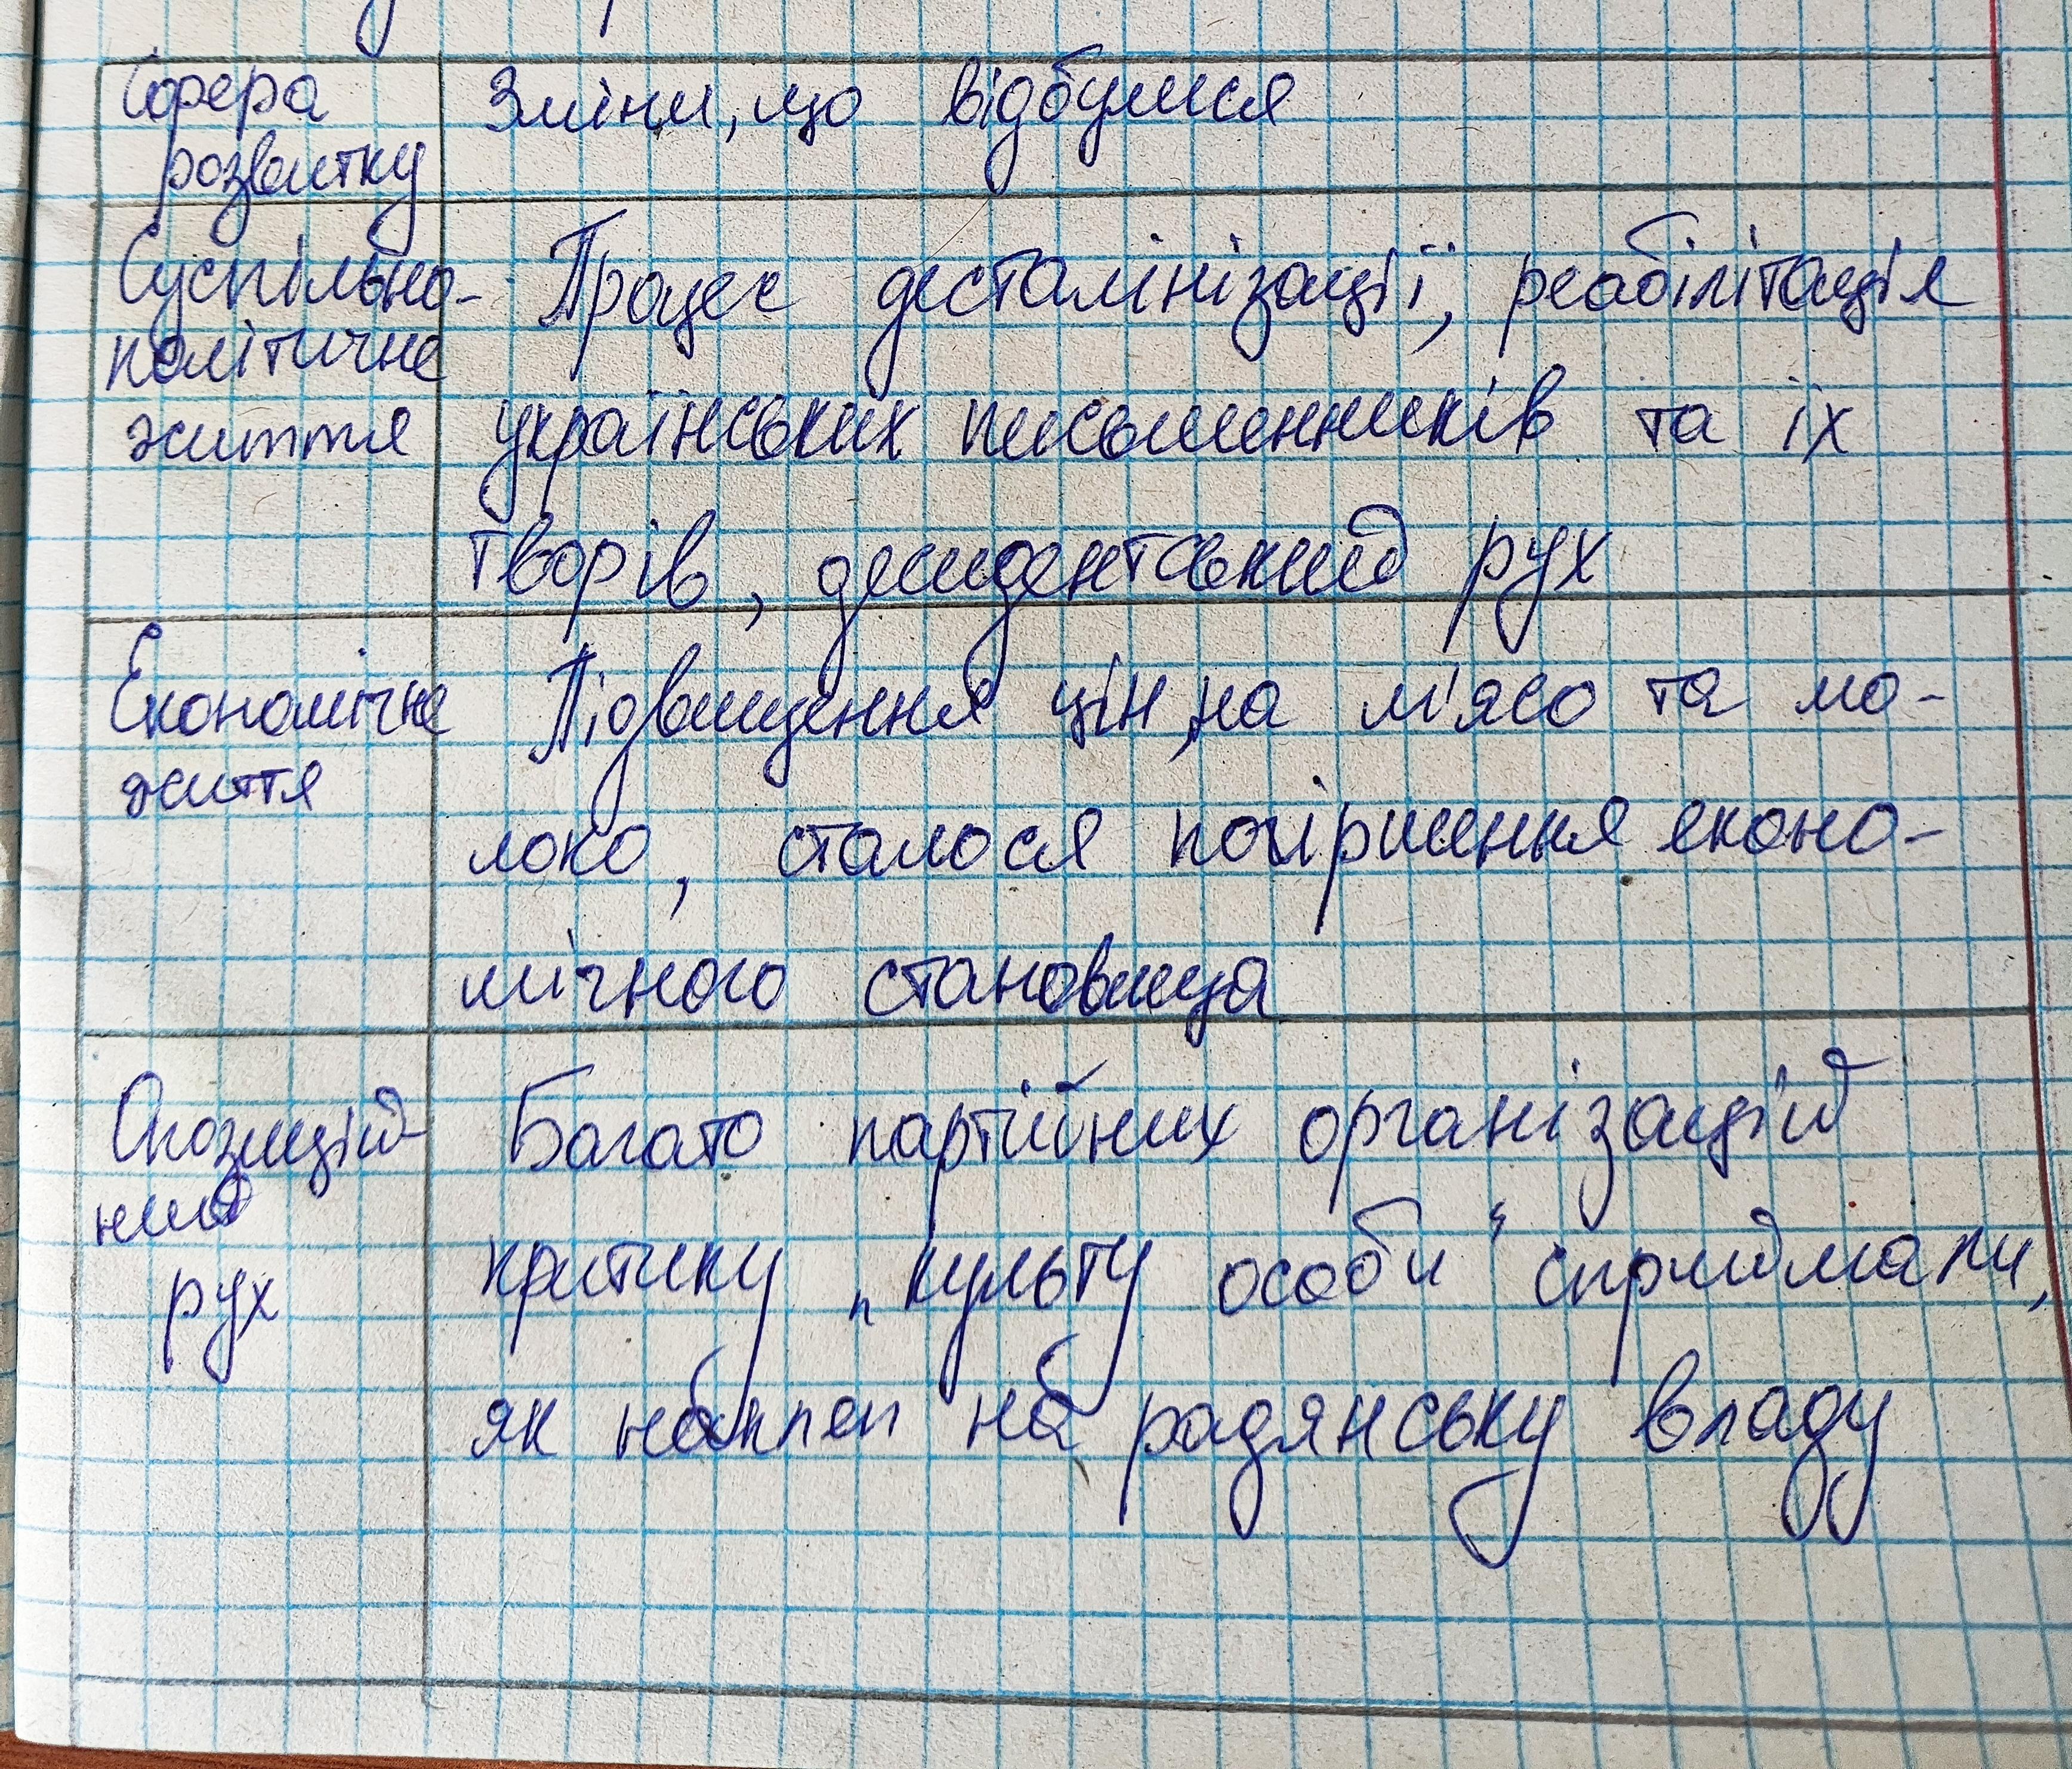 Сфера розвитку
Зміни, що відбулися
Суспільно-
політичне
життя
Процес десталінізації, реабілітація
українських письменників та їх
творів, десидентський рух
Економічне
життя
Підвищення цін на м'ясо та мо-
локо, сталося погіршення еконо-
мічного становища
Опозицій-
ний
рух
Багато партійних організацій
критику „культу особи“ сприймали,
як на радянську владу